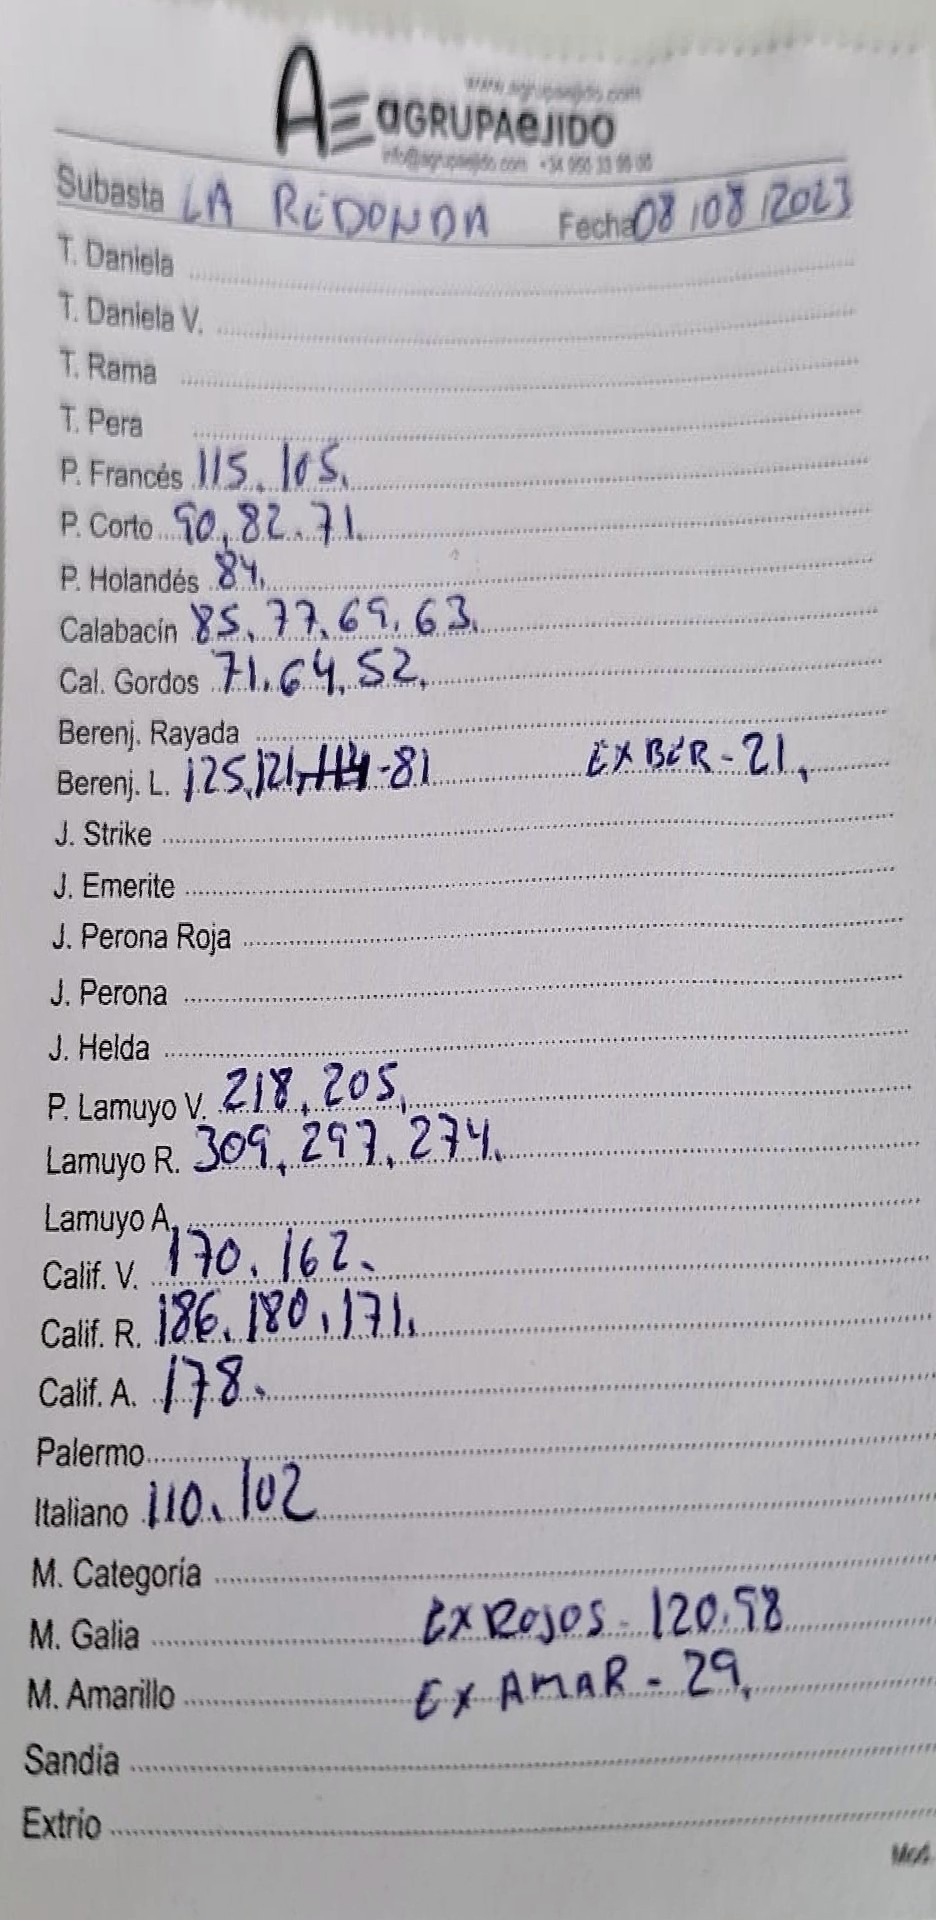 www.agrupaejido.com
AE aGRUPAeJIDO
info@agrupaejido.com +34 950 33 99 00
Subasta LA REDONDA Fecha 08/08/2023
T. Daniela
T. Daniela V.
T. Rama
T. Pera
P. Francés 115. 105.
P. Corto 90, 82. 71.
P. Holandés 84.
Calabacín 85. 77. 69. 63.
Cal. Gordos 71. 64. 52.
Berenj. Rayada
Berenj. L. 125, 121, -81 EX BER - 21.
J. Strike
J. Emerite
J. Perona Roja
J. Perona
J. Helda
P. Lamuyo V. 218. 205.
Lamuyo R. 309. 297. 274.
Lamuyo A.
Calif. V. 170. 162.
Calif. R. 186. 180. 171.
Calif. A. 178.
Palermo
Italiano 110. 102
M. Categoría
M. Galia EX ROJOS - 120. 98
M. Amarillo EX AMAR - 29.
Sandía
Extrio